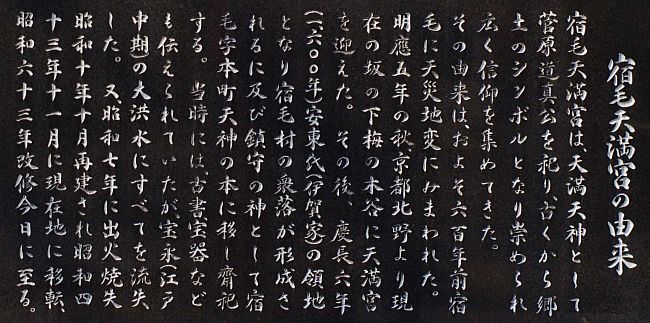 宿毛天満宮の由来
宿毛天満宮は、天満天神として
菅原道真公を祀り、古くから郷
土のシンボルとなり崇められ
広く信仰を集めてきた。
その由来は、およそ六百年前宿
毛に天災地変にみまわれた。
明應五年の秋、京都北野より現
在の坂の下梅の木谷に天満宮
を迎えた。その後、慶長六年
(一六〇〇年)安東氏(伊賀家の領地
となり宿毛村の衆落が形成さ
れるに及び鎮守の神として宿
毛字本町天神の本に移し齊祀
する。当時には古書宝器など
も伝えられていたが、宝永(江戸
中期)の大洪水にすべてを流失
した。又、昭和七年に出火焼失
昭和十年十月再建され昭和四
十三年十一月に現在地に移転、
昭和六十三年改修今日に至る。